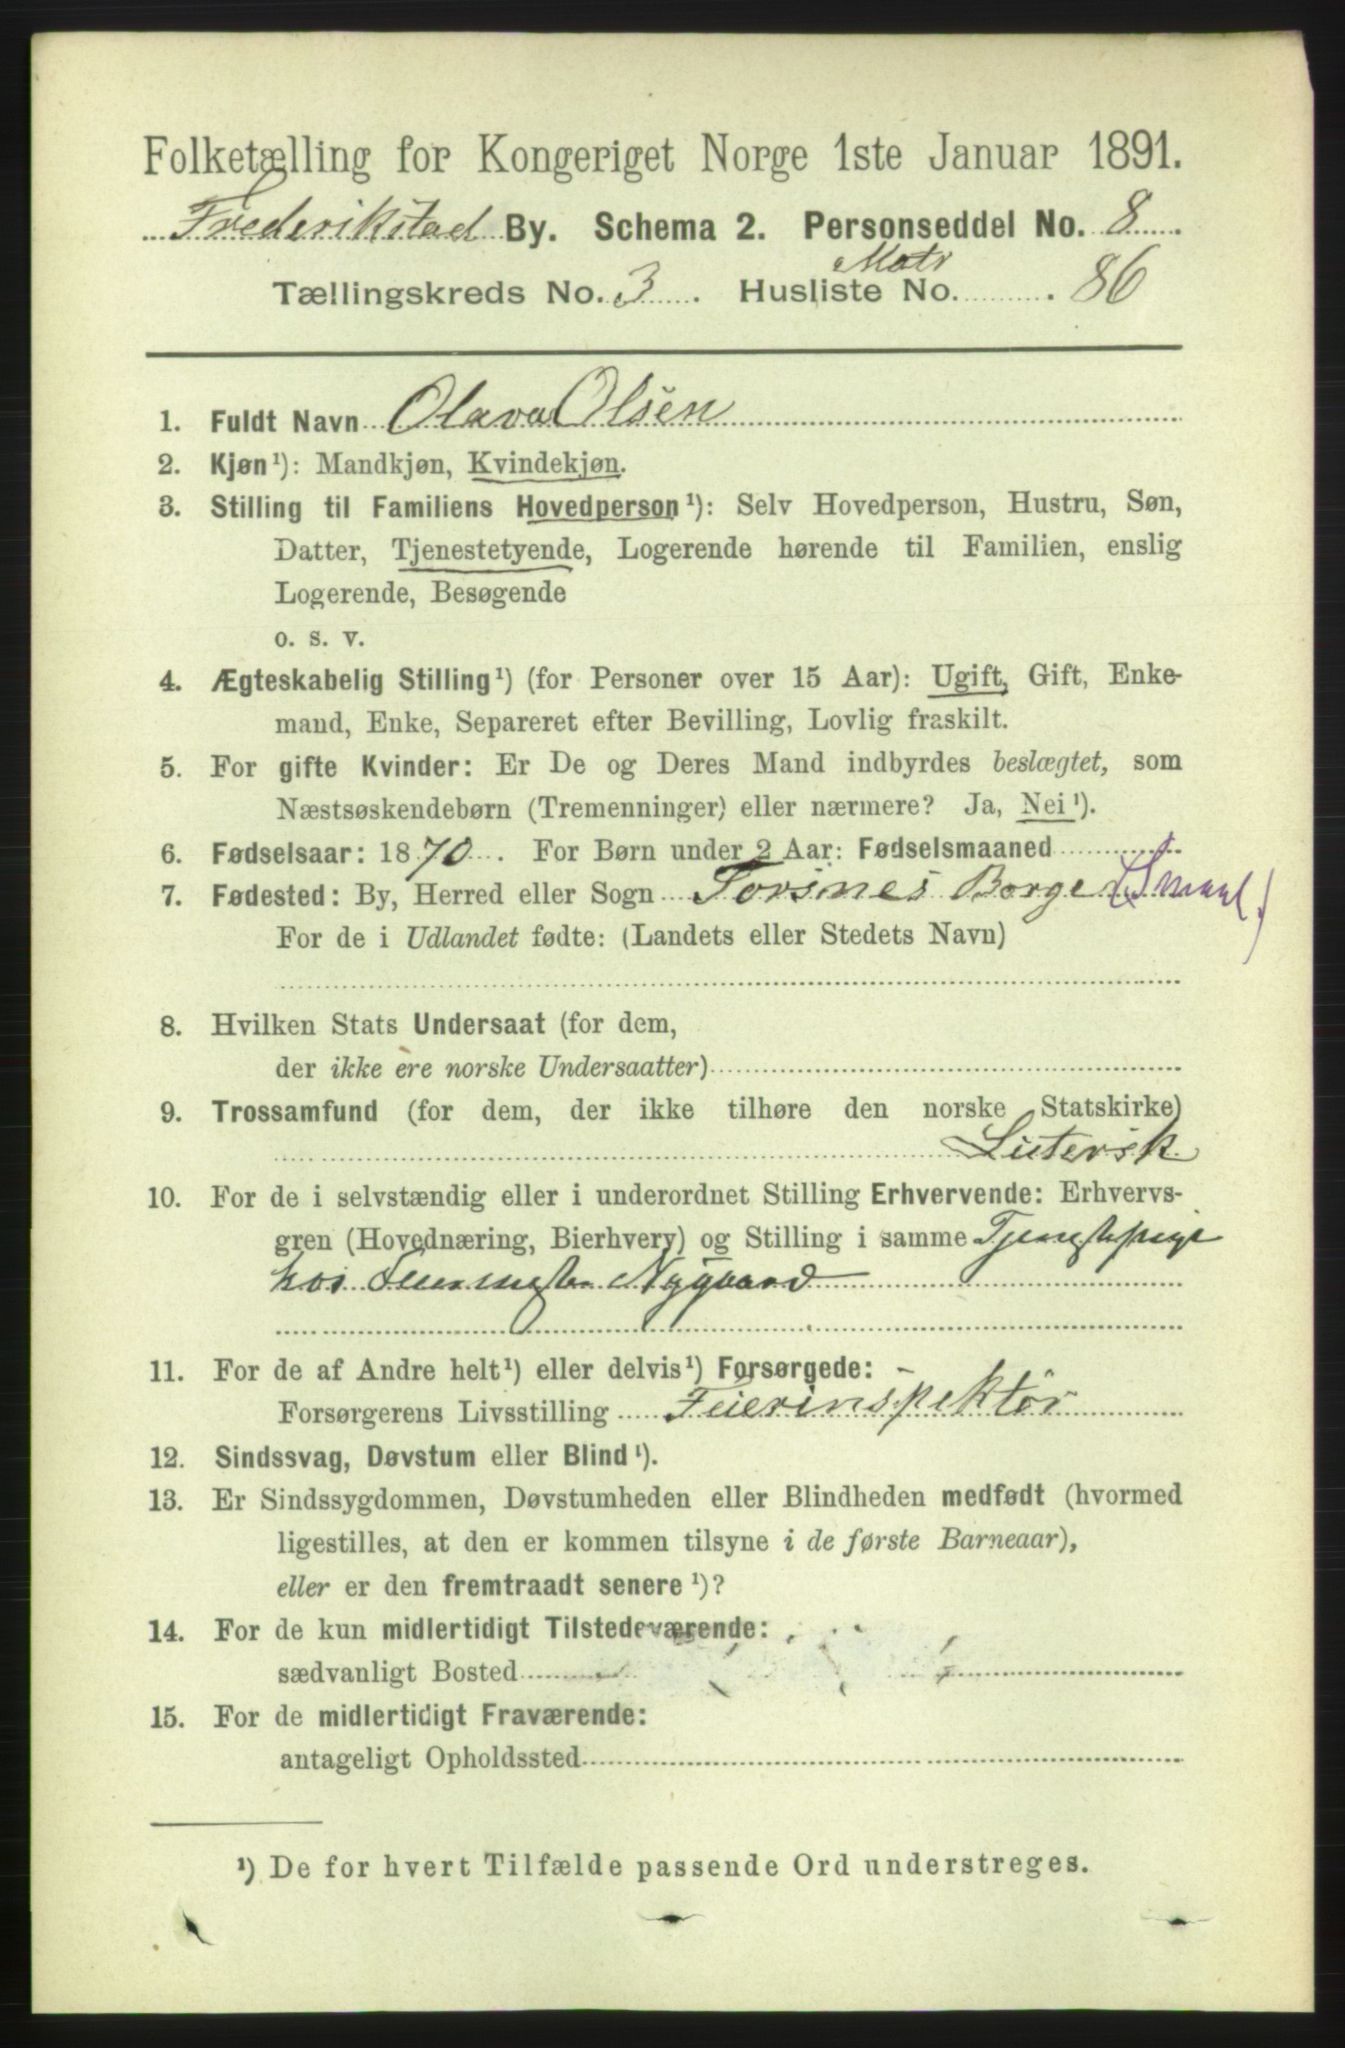 Folketælling for Kongeriget Norge 1ste Januar 1891.
Frederikstad By. Schema 2. Personseddel No. 8
Matr
Tællingskreds No. 3. Husliste No. 86
1. Fuldt Navn Olava Olsen
2. Kjøn¹): Mandkjøn, Kvindekjøn.
3. Stilling til Familiens Hovedperson¹): Selv Hovedperson, Hustru, Søn,
Datter, Tjenestetyende, Logerende hørende til Familien, enslig
Logerende, Besøgende
o. s. v.
4. Ægteskabelig Stilling¹) (for Personer over 15 Aar): Ugift, Gift, Enke-
mand, Enke, Separeret efter Bevilling, Lovlig fraskilt.
5. For gifte Kvinder: Er De og Deres Mand indbyrdes beslægtet, som
Næstsøskendebørn (Tremenninger) eller nærmere? Ja, Nei¹).
6. Fødselsaar: 1870. For Børn under 2 Aar: Fødselsmaaned
7. Fødested: By, Herred eller Sogn Torsnes Borge (Smaal.)
For de i Udlandet fødte: (Landets eller Stedets Navn)
8. Hvilken Stats Undersaat (for dem,
der ikke ere norske Undersaatter)
9. Trossamfund (for dem, der ikke tilhøre den norske Statskirke)
Lutersk
10. For de i selvstændig eller i underordnet Stilling Erhvervende: Erhvervs-
gren (Hovednæring, Bierhverv) og Stilling i samme Tjenestepige
hos Nygaard
11. For de af Andre helt¹) eller delvis¹) Forsørgede:
Forsørgerens Livsstilling Feierinspektör
12. Sindssvag, Døvstum eller Blind¹).
13. Er Sindssygdommen, Døvstumheden eller Blindheden medfødt (hvormed
ligestilles, at den er kommen tilsyne i de første Barneaar),
eller er den fremtraadt senere¹)?
14. For de kun midlertidigt Tilstedeværende:
sædvanligt Bosted
15. For de midlertidigt Fraværende:
antageligt Opholdssted
¹) De for hvert Tilfælde passende Ord understreges.